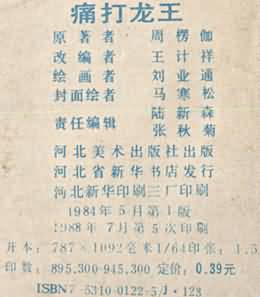 痛打龙王
原著者 周楞伽
改编者 王计祥
绘画者 刘业通
封面绘者 马寒松
责任编辑 陆新森
张秋菊
河北美术出版社出版
河北省新华书店发行
河北新华印刷三厂印刷
1984年5月第1版
1988年7月第5次印刷
开本：787×1092毫米1/64印张：1.5
印数：895,300-945,300 定价：0.39元
ISBN7-5310-0122-5/J·123